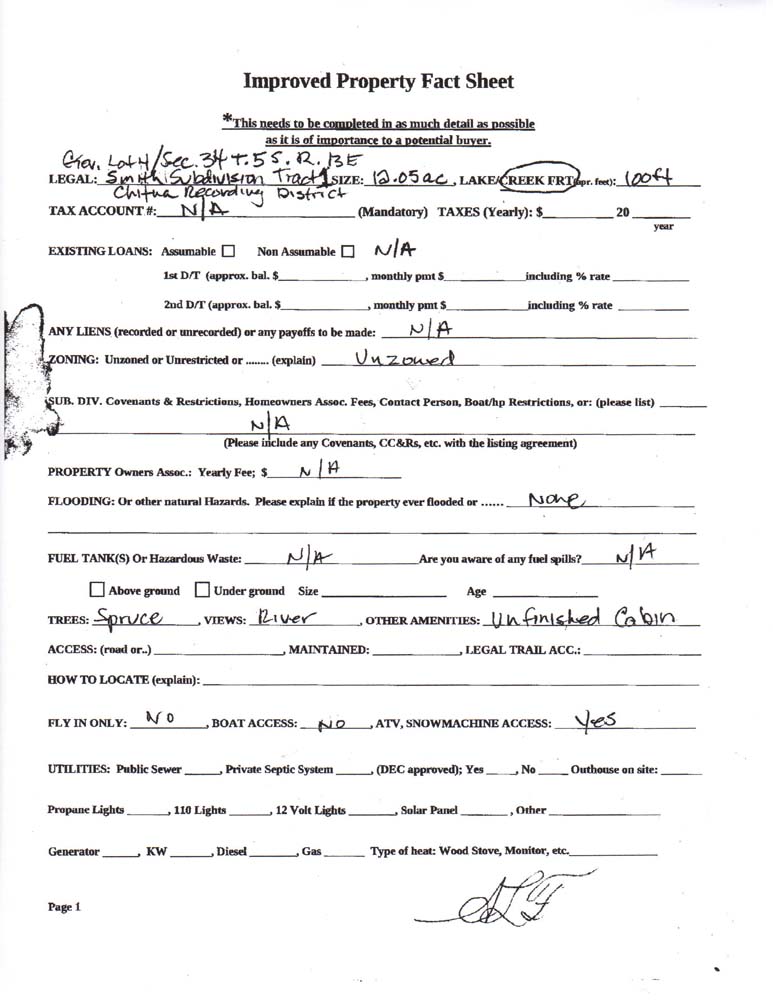 Improved Property Fact Sheet
*This needs to be completed in as much detail as possible
as it is of importance to a potential buyer.
Gov. Lot 4/Sec. 34 T.5 S. R. 13E
LEGAL: Smith Subdivision Tract 1 SIZE: 12.05 ac, LAKE/CREEK FRT (apr. feet): 100ft
Chitna Recording District
TAX ACCOUNT #: N/A (Mandatory) TAXES (Yearly): $ 20
year
EXISTING LOANS: Assumable Non Assumable N/A
1st D/T (approx. bal. $ , monthly pmt $ including % rate
2nd D/T (approx. bal. $ , monthly pmt $ including % rate
ANY LIENS (recorded or unrecorded) or any payoffs to be made: N/A
ZONING: Unzoned or Unrestricted or ........ (explain) Unzowed
SUB. DIV. Covenants & Restrictions, Homeowners Assoc. Fees, Contact Person, Boat/hp Restrictions, or: (please list)
N/A
(Please include any Covenants, CC&Rs, etc. with the listing agreement)
PROPERTY Owners Assoc.: Yearly Fee; $ N/A
FLOODING: Or other natural Hazards. Please explain if the property ever flooded or ...... None
FUEL TANK(S) Or Hazardous Waste: N/A Are you aware of any fuel spills? N/A
Above ground Under ground Size Age
TREES: Spruce , VIEWS: River , OTHER AMENITIES: Unfinished Cabin
ACCESS: (road or..) , MAINTAINED: , LEGAL TRAIL ACC.:
HOW TO LOCATE (explain):
FLY IN ONLY: NO , BOAT ACCESS: NO , ATV, SNOWMACHINE ACCESS: Yes
UTILITIES: Public Sewer , Private Septic System , (DEC approved); Yes , No Outhouse on site:
Propane Lights , 110 Lights , 12 Volt Lights , Solar Panel , Other
Generator , KW , Diesel , Gas Type of heat: Wood Stove, Monitor, etc.
Page 1